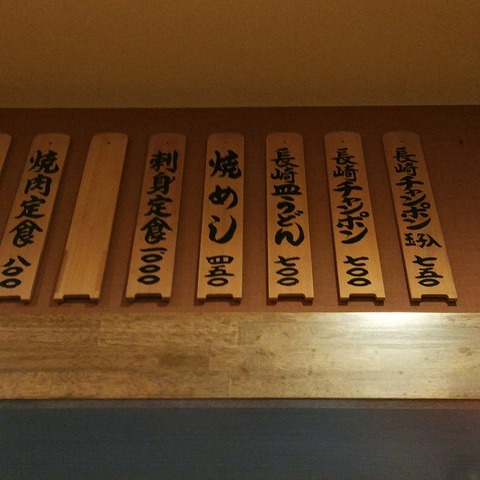 長崎チャンポン玉子入 七五〇
長崎チャンポン 七〇〇
長崎皿うどん 七〇〇
焼めし 四五〇
刺身定食 一〇〇〇
焼肉定食 八〇〇